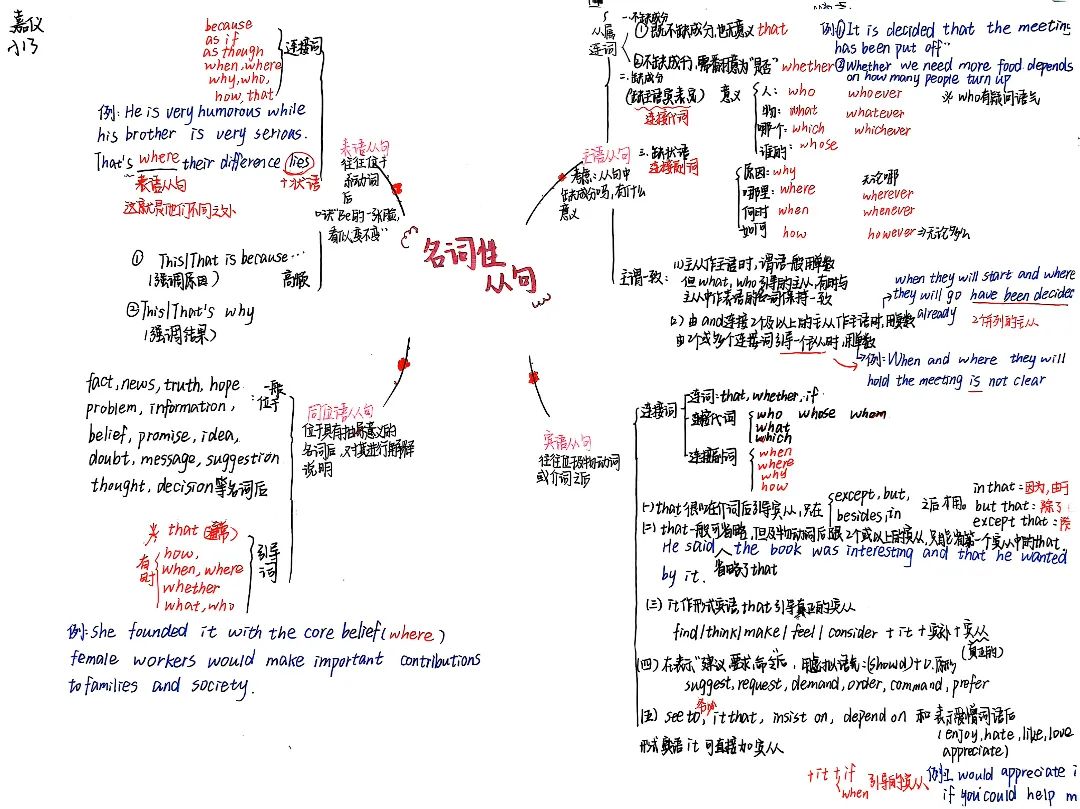 嘉仪
213
名词性
从句
because
as if
as though
when, where
why, who,
how, that
连接词
例: He is very humorous while
his brother is very serious.
That's where their difference lies
表语从句
+状语
这就是他们不同之处
表语从句
往往位于
系动词
后
口诀"Be的一张脸,
看似变不变"
① This|That is because…
(强调原因)
高频
②This|That's why
(强调结果)
主语从句
考虑:从句中
缺成分吗,有什么
意义
从属
连词
一.不缺成分
①既不缺成分,也无意义 that
②不缺成分,需要意为"是否" whether
例:①It is decided that the meeting
has been put off"
②Whether we need more food depends
on how many people turn up
二.缺成分
(缺主语宾表定)
连接代词
意义
人: who whoever
※ who有疑问语气
物: what whatever
哪个: which whichever
谁的: whose
三.缺状语
连接副词
原因: why
无论哪
哪里: where wherever
何时 when whenever
如何 how however ⇒无论多么
主谓一致:
(1)主从作主语时,谓语一般用单数
但what, who引导的主从,有时与
主从中作表语的名词保持一致
(2)由and连接2个及以上的主从作主语时,用复数
由2个或多个连接词引导一个主从时,用单数
when they will start and where
they will go have been decided
already
2个并列的主从
例: When and where they will
hold the meeting is not clear
同位语从句
位于具有抽象意义的
名词后,对其进行解释
说明
一般
位于
fact, news, truth, hope
problem, information,
belief, promise, idea,
doubt, message, suggestion
thought, decision等名词后
引导
词
※ that
有时
how,
when, where
whether
what, who
例: She founded it with the core belief(where)
female workers would make important contributions
to families and society.
宾语从句
往往位于及物动词
或介词之后
连接词
连词: that, whether, if
连接代词
who whose whom
what
which
连接副词
when
where
why
how
(一)that很少在介词后引导宾从,只在
except, but,
besides, in
之后才用。
in that:因为,由于
but that:除了
except that:除
(二)that一般可省略,但及物动词后跟2个或以上的宾从,只能省第一个宾从中的that.
He said ∧ the book was interesting and that he wanted
by it. 省略了that
(三) it作形式宾语, that引导真正的宾从
find|think|make|feel|consider + it + 宾补 + 宾从
(真正的)
(四)在表示"建议 要求,命令"后,用虚拟语气:(should)+V.原形
suggest, request, demand, order, command, prefer
(五) see to, it that, insist on, depend on 和 表示爱憎词语后
(enjoy, hate, like, love
appreciate)
形式宾语 it 可直接加宾从
+it + if
when
引导的宾从
例:I would appreciate i
if you could help m